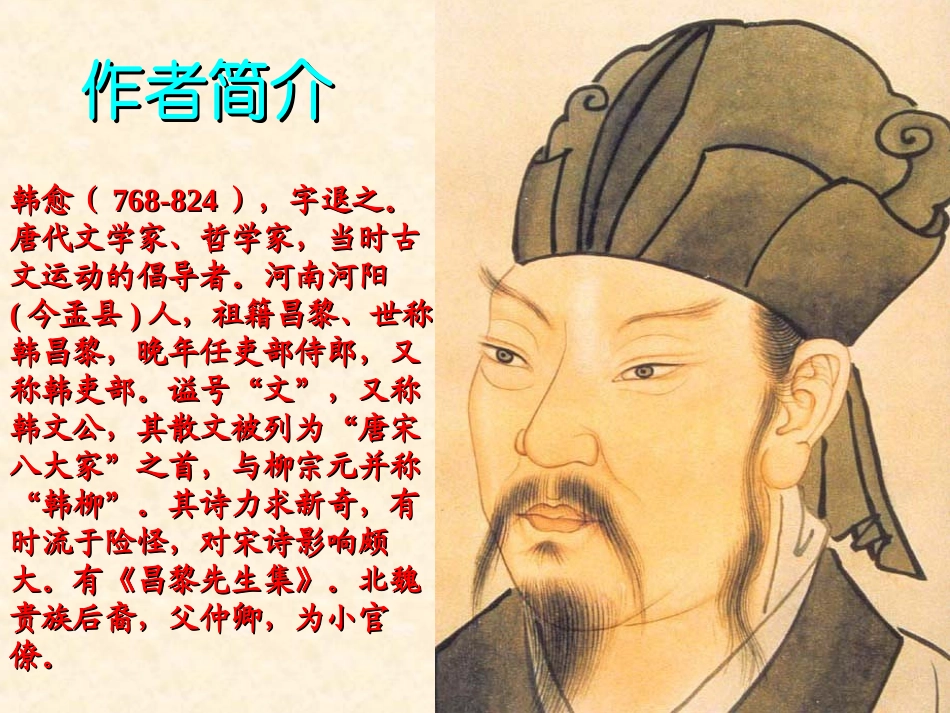 作者简介
韩愈（ 768-824 ），字退之。
唐代文学家、哲学家，当时古
文运动的倡导者。河南河阳
(今孟县)人，祖籍昌黎、世称
韩昌黎，晚年任吏部侍郎，又
称韩吏部。谥号“文”，又称
韩文公，其散文被列为“唐宋
八大家”之首，与柳宗元并称
“韩柳”。其诗力求新奇，有
时流于险怪，对宋诗影响颇
大。有《昌黎先生集》。北魏
贵族后裔，父仲卿，为小官
僚。